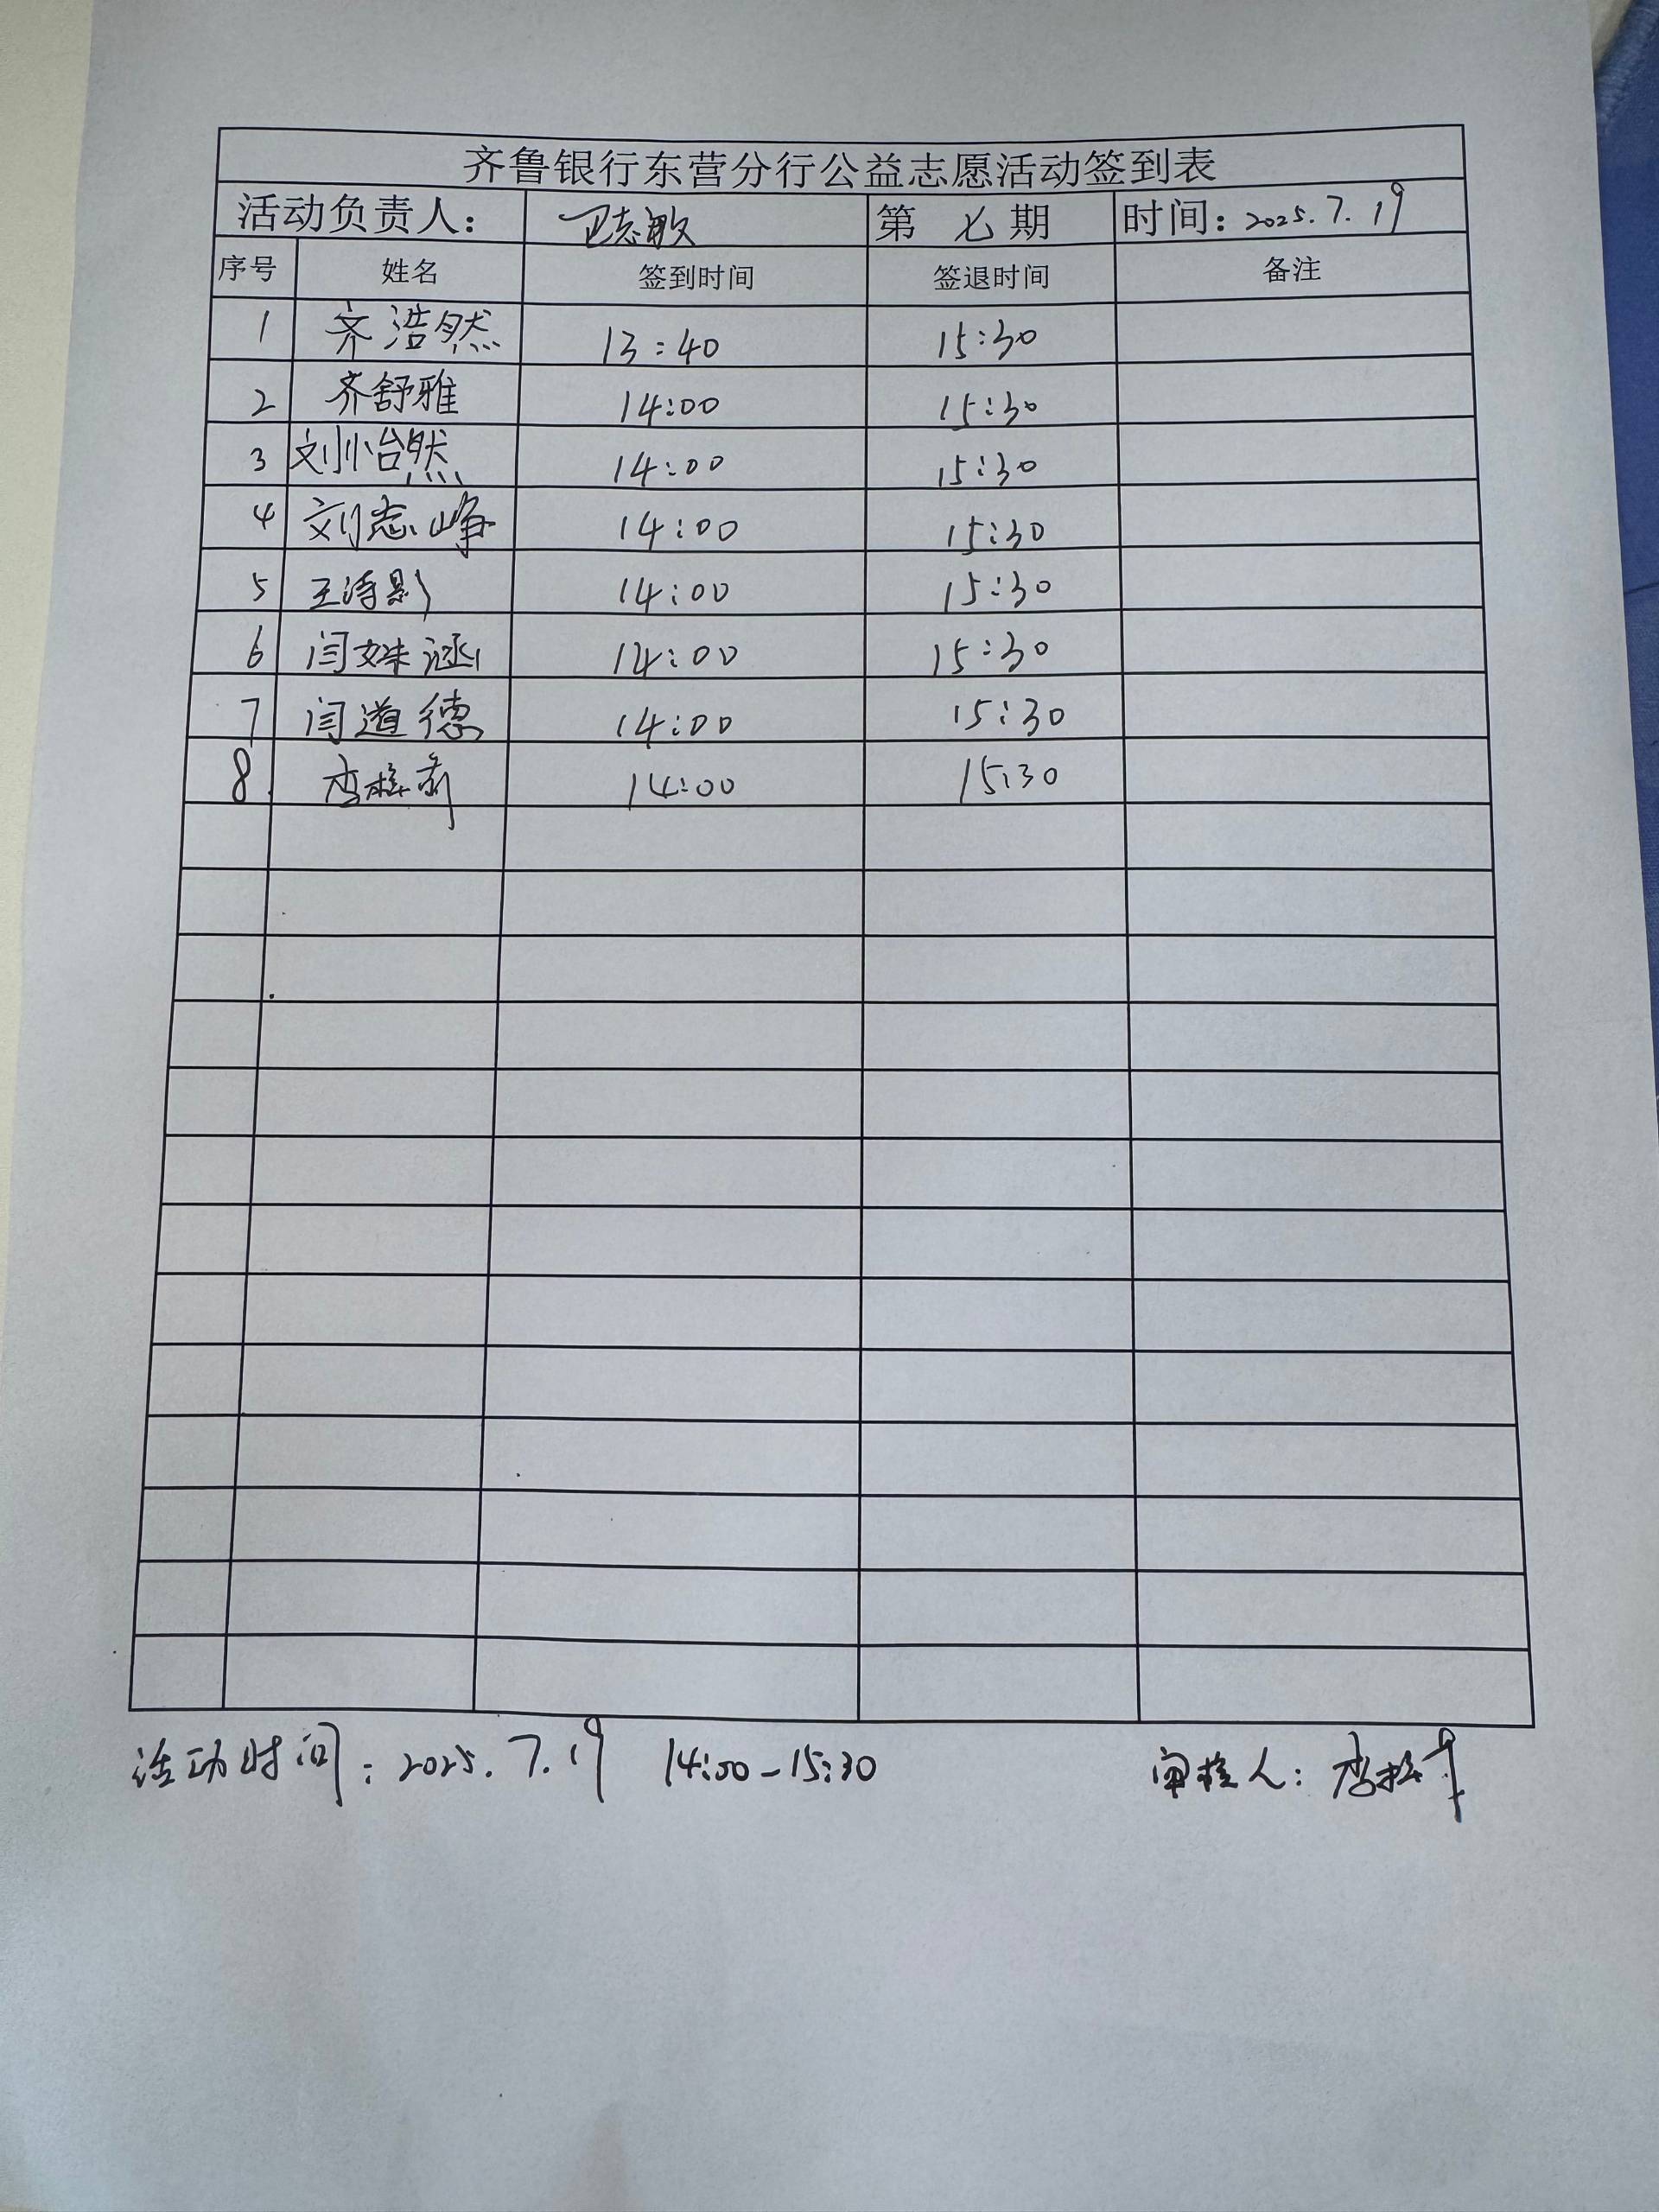 齐鲁银行东营分行公益志愿活动签到表
活动负责人： 卫志敏 第 七 期 时间：2025.7.19
序号 姓名 签到时间 签退时间 备注
1 齐浩然 13:40 15:30
2 齐舒雅 14:00 15:30
3 刘怡然 14:00 15:30
4 刘志峥 14:00 15:30
5 王诗影 14:00 15:30
6 闫姝涵 14:00 15:30
7 闫道德 14:00 15:30
8 14:00 15:30
活动时间：2025.7.19 14:00-15:30 审核人：